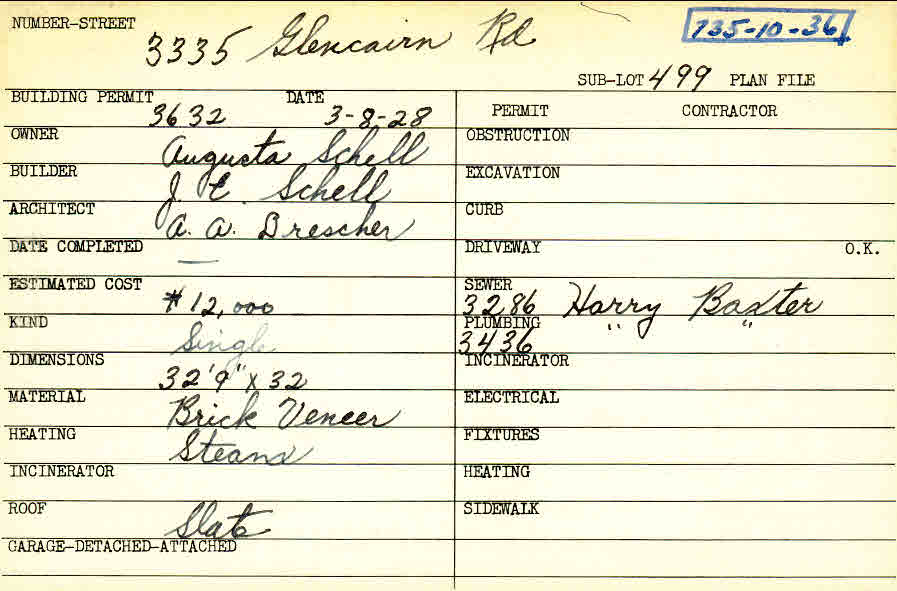 NUMBER-STREET 3335 Glencairn Rd 735-10-36
SUB-LOT 499 PLAN FILE
BUILDING PERMIT 3632 DATE 3-8-28
PERMIT CONTRACTOR
OWNER Augusta Schell
OBSTRUCTION
BUILDER J. E. Schell
EXCAVATION
ARCHITECT A. A. Drescher
CURB
DATE COMPLETED —
DRIVEWAY O.K.
ESTIMATED COST $12,000
SEWER 3286 Harry Baxter
KIND Single
PLUMBING 3436 " "
DIMENSIONS 32'9" x 32
INCINERATOR
MATERIAL Brick Veneer
ELECTRICAL
HEATING Steam
FIXTURES
INCINERATOR
HEATING
ROOF Slate
SIDEWALK
GARAGE-DETACHED-ATTACHED